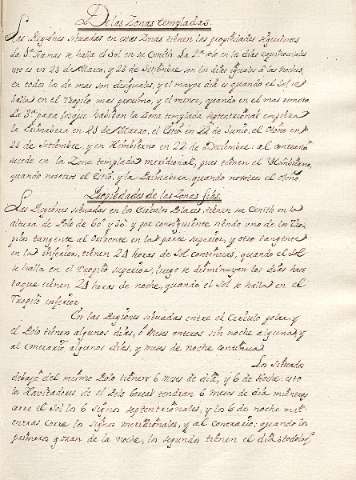 De las Zonas templadas.
Las Regiones situadas en estas Zonas tienen las propiedades siguientes
1ª Jamas se halla el Sol en su Cenith. La 2ª solo en los dias equinocciales
que es en 21 de Marzo, y 23 de Setiembre son los dias iguales à las noches,
en todos los de mas son desiguales, y el mayor dia es quando el Sol se
halla en el Tropico mas proximo, y el menor, quando en el mas remoto
La 3ª para los que habitan la Zona templada septentrional empieza
la Primavera en 21 de Marzo, el Estio en 22 de Junio, el Otoño en
23 de Setiembre, y en Hinbierno en 22 de Diciembre: al contrario
sucede en la Zona templada meridional, pues tienen el Hinbierno,
quando nosotros el Estio, y la Primavera quando nosotros el Otoño.
Propiedades de las Zonas frias.
Las Regiones situadas en los Circulos Polares tienen su Cenith en la
altura de Polo de 66º y 30' y por consiguiente siendo uno de los Tro-
picos tangente al Orizonte en la parte superior, y otro tangente
en la inferior, tienen 24 horas de Sol continuas, quando el Sol
se halla en el Tropico superior, luego se disminuyen los dias hasta
que tienen 24 horas de noche, quando el Sol se halla en el
Tropico inferior.
En las Regiones situadas entre el Circulo polar, y
el Polo tienen algunos dias, ò Meses enteros sin noche alguna, y
al contrario algunos dias, y meses de noche continua.
Los situados
debajo del mismo Polo tienen 6 meses de dia, y 6 de Noche: esto
los Havitadores de el Polo boreal tendran 6 Meses de dia mientras
corre el Sol los 6 Signos septentrionales, y los 6 de noche mi-
entras corre los Signos meridionales, y al contrario: quando los
primeros gozan de la noche, los segundos tienen el dia; todos los